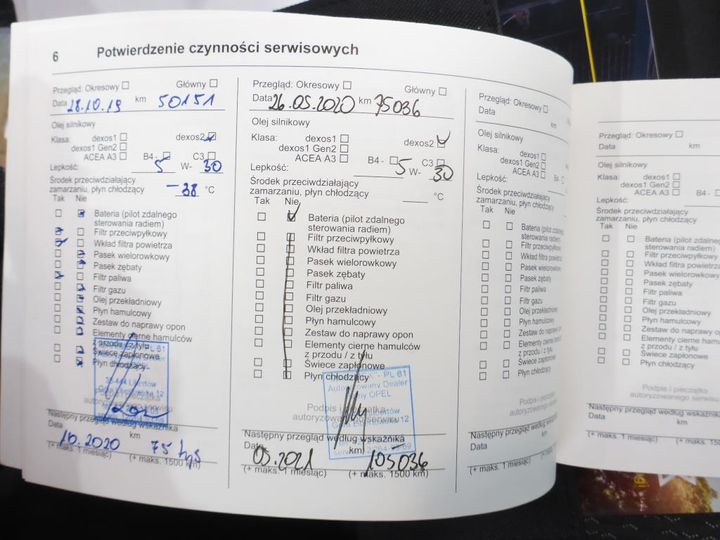 6 Potwierdzenie czynności serwisowych
Przegląd: Okresowy Główny
Data 28.10.19 km 50151
Olej silnikowy
Klasa: dexos1 dexos2
dexos1 Gen2
ACEA A3 B4 - C3
Lepkość: 5 W- 30
Środek przeciwdziałający
zamarzaniu, płyn chłodzący -38 °C
Tak Nie
Bateria (pilot zdalnego
sterowania radiem)
Filtr przeciwpyłkowy
Wkład filtra powietrza
Pasek wielorowkowy
Pasek zębaty
Filtr paliwa
Filtr gazu
Olej przekładniowy
Płyn hamulcowy
Zestaw do naprawy opon
Elementy cierne hamulców
z przodu / z tyłu
Świece zapłonowe
Płyn chłodzący
Następny przegląd według wskaźnika
Data 10.2020 75 tys
(+ maks. 1 miesiąc) (+ maks. 1500 km)
Przegląd: Okresowy Główny
Data 26.05.2020 km 75036
Olej silnikowy
Klasa: dexos1 dexos2
dexos1 Gen2
ACEA A3 B4 - C3
Lepkość: 5 W- 30
Środek przeciwdziałający
zamarzaniu, płyn chłodzący °C
Tak Nie
Bateria (pilot zdalnego
sterowania radiem)
Filtr przeciwpyłkowy
Wkład filtra powietrza
Pasek wielorowkowy
Pasek zębaty
Filtr paliwa
Filtr gazu
Olej przekładniowy
Płyn hamulcowy
Zestaw do naprawy opon
Elementy cierne hamulców
z przodu / z tyłu
Świece zapłonowe
Płyn chłodzący
Podpis i pieczątka
autoryzowanego serwisu
Następny przegląd według wskaźnika
Data 05.2021 km 105036
(+ maks. 1 miesiąc) (+ maks. 1500 km)
Przegląd: Okresowy
Data km
Olej silnikowy
Klasa: dexos1
dexos1 Gen2
ACEA A3
Lepkość:
Środek przeciwdziałający
zamarzaniu, płyn chłodzący
Tak Nie
Bateria (pilot zdalnego
sterowania radiem)
Filtr przeciwpyłkowy
Wkład filtra powietrza
Pasek wielorowkowy
Pasek zębaty
Filtr paliwa
Filtr gazu
Olej przekładniowy
Płyn hamulcowy
Zestaw do naprawy opon
Elementy cierne hamulców
z przodu / z tyłu
Świece zapłonowe
Płyn chłodzący
Podpis i pieczątka
autoryzowanego
Następny przegląd według
Data
(+ maks. 1 miesiąc)
Przegląd: Okresowy
Data km
Olej silnikowy
Klasa: dexos1
dexos1 Gen2
ACEA A3
Lepkość:
Środek przeciwdziałający
zamarzaniu, płyn chłodzący
Tak Nie
Bateria (pilot zdalnego
sterowania radiem)
Filtr przeciwpyłkowy
Wkład filtra powietrza
Pasek wielorowkowy
Pasek zębaty
Filtr paliwa
Filtr gazu
Olej przekładniowy
Płyn hamulcowy
Zestaw do naprawy opon
Elementy cierne hamulców
z przodu / z tyłu
Świece zapłonowe
Płyn chłodzący
Podpis i pieczątka
autoryzowanego
Następny przegląd według
Data
(+ maks. 1 miesiąc)